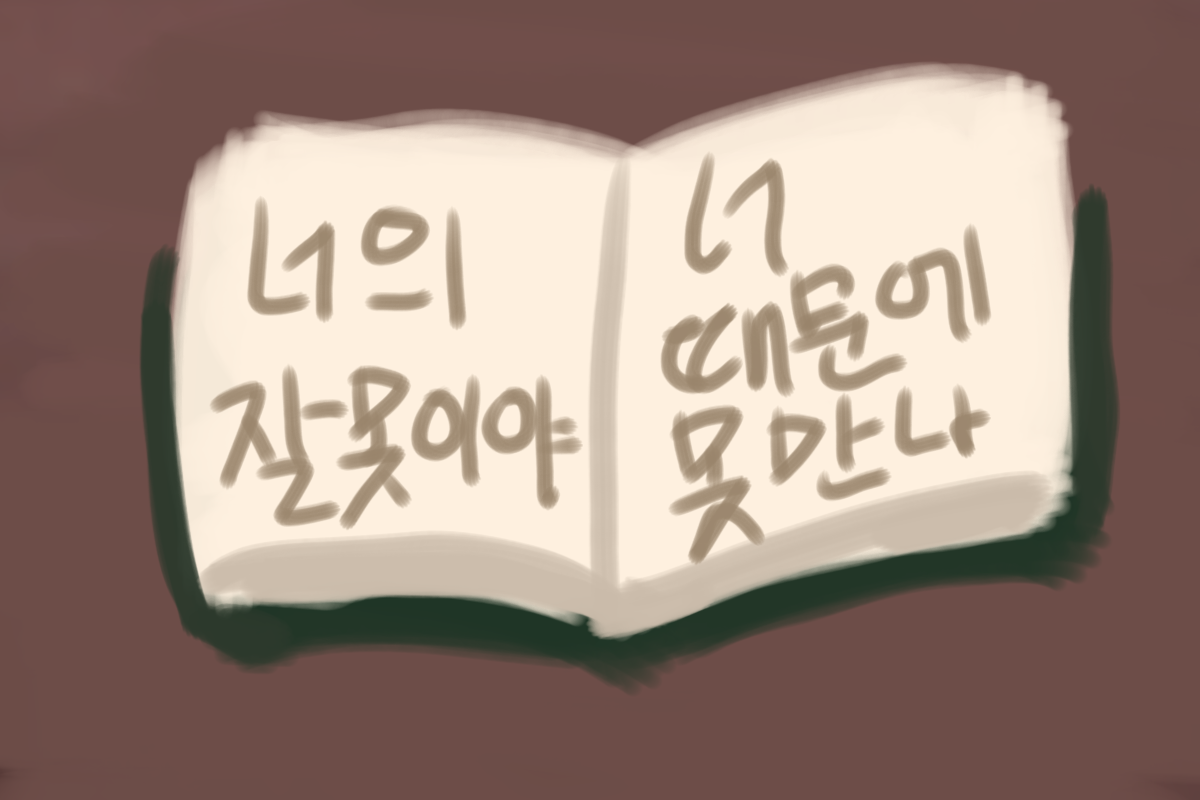 너의
잘못이야
너
때문에
못만나